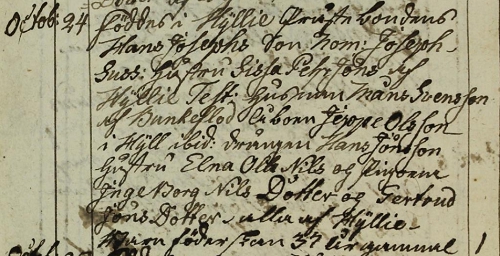 Octob: 24 föddes i Hyllie Cruste bondens
Hans Josephs Son Nom: Joseph
Susc: Hustru Sissa Pehr Jöns af
Hyllie Test: Husman Måns Svensson
af Bunkeflod Åborn Jeppe Olsson
i Hyll ibid: drängen Hans Jönsson
Hustru Elna Olla Nils og Pigorna
Ingeborg Nils Dotter og Gertrud
Jöns Dotter alla af Hyllie
Barnföderskan 37 år gammal 1